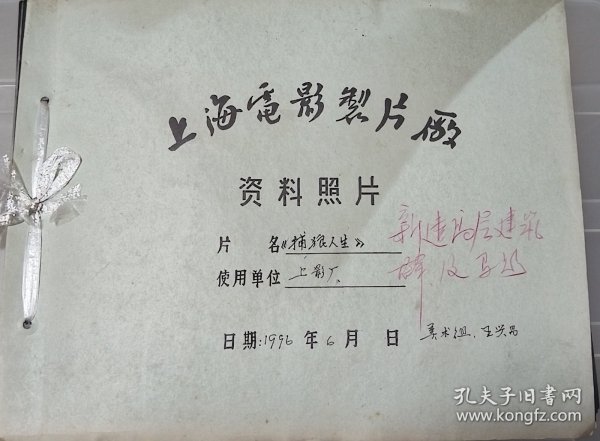 上海電影製片廠
资料照片
片 名《捕狼人生》 新建高层建筑
使用单位 上影厂
日期:1996 年 6 月 日 美术组 王兴昌
孔夫子旧书网
www.kongfz.com